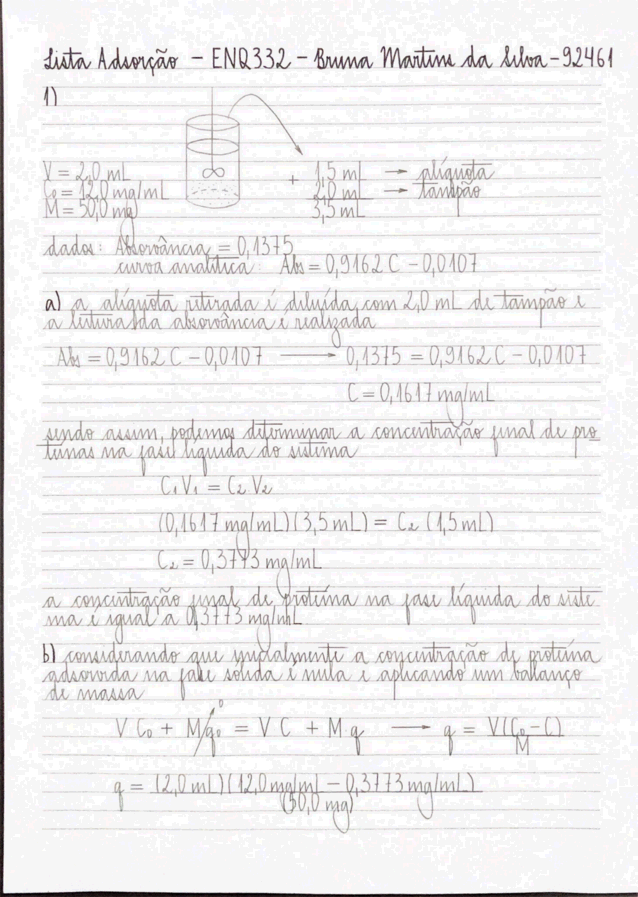 Lista Adsorção - ENQ332 - Bruna Martins da Silva - 92461
1)
V = 2,0 mL
C₀ = 12,0 mg/mL
M = 50,0 mg
+ 1,5 mL → alíquota
2,0 mL → tampão
3,5 mL
dados: Absorvância = 0,1375
curva analítica: Abs = 0,9162 C - 0,0107
a) a alíquota retirada é diluída com 2,0 mL de tampão e
a leitura da absorvância é realizada
Abs = 0,9162 C - 0,0107 → 0,1375 = 0,9162 C - 0,0107
C = 0,1617 mg/mL
sendo assim, podemos determinar a concentração final de pro
teínas na fase líquida do sistema
C₁V₁ = C₂V₂
(0,1617 mg/mL)(3,5 mL) = C₂ (1,5 mL)
C₂ = 0,3773 mg/mL
a concentração final de proteína na fase líquida do siste
ma é igual a 0,3773 mg/mL
b) considerando que inicialmente a concentração de proteína
adsorvida na fase sólida é nula e aplicando um balanço
de massa
V C₀ + M q₀ 0 = V C + M q → q = V(C₀ - C) / M
q = (2,0 mL)(12,0 mg/mL - 0,3773 mg/mL)
(50,0 mg)